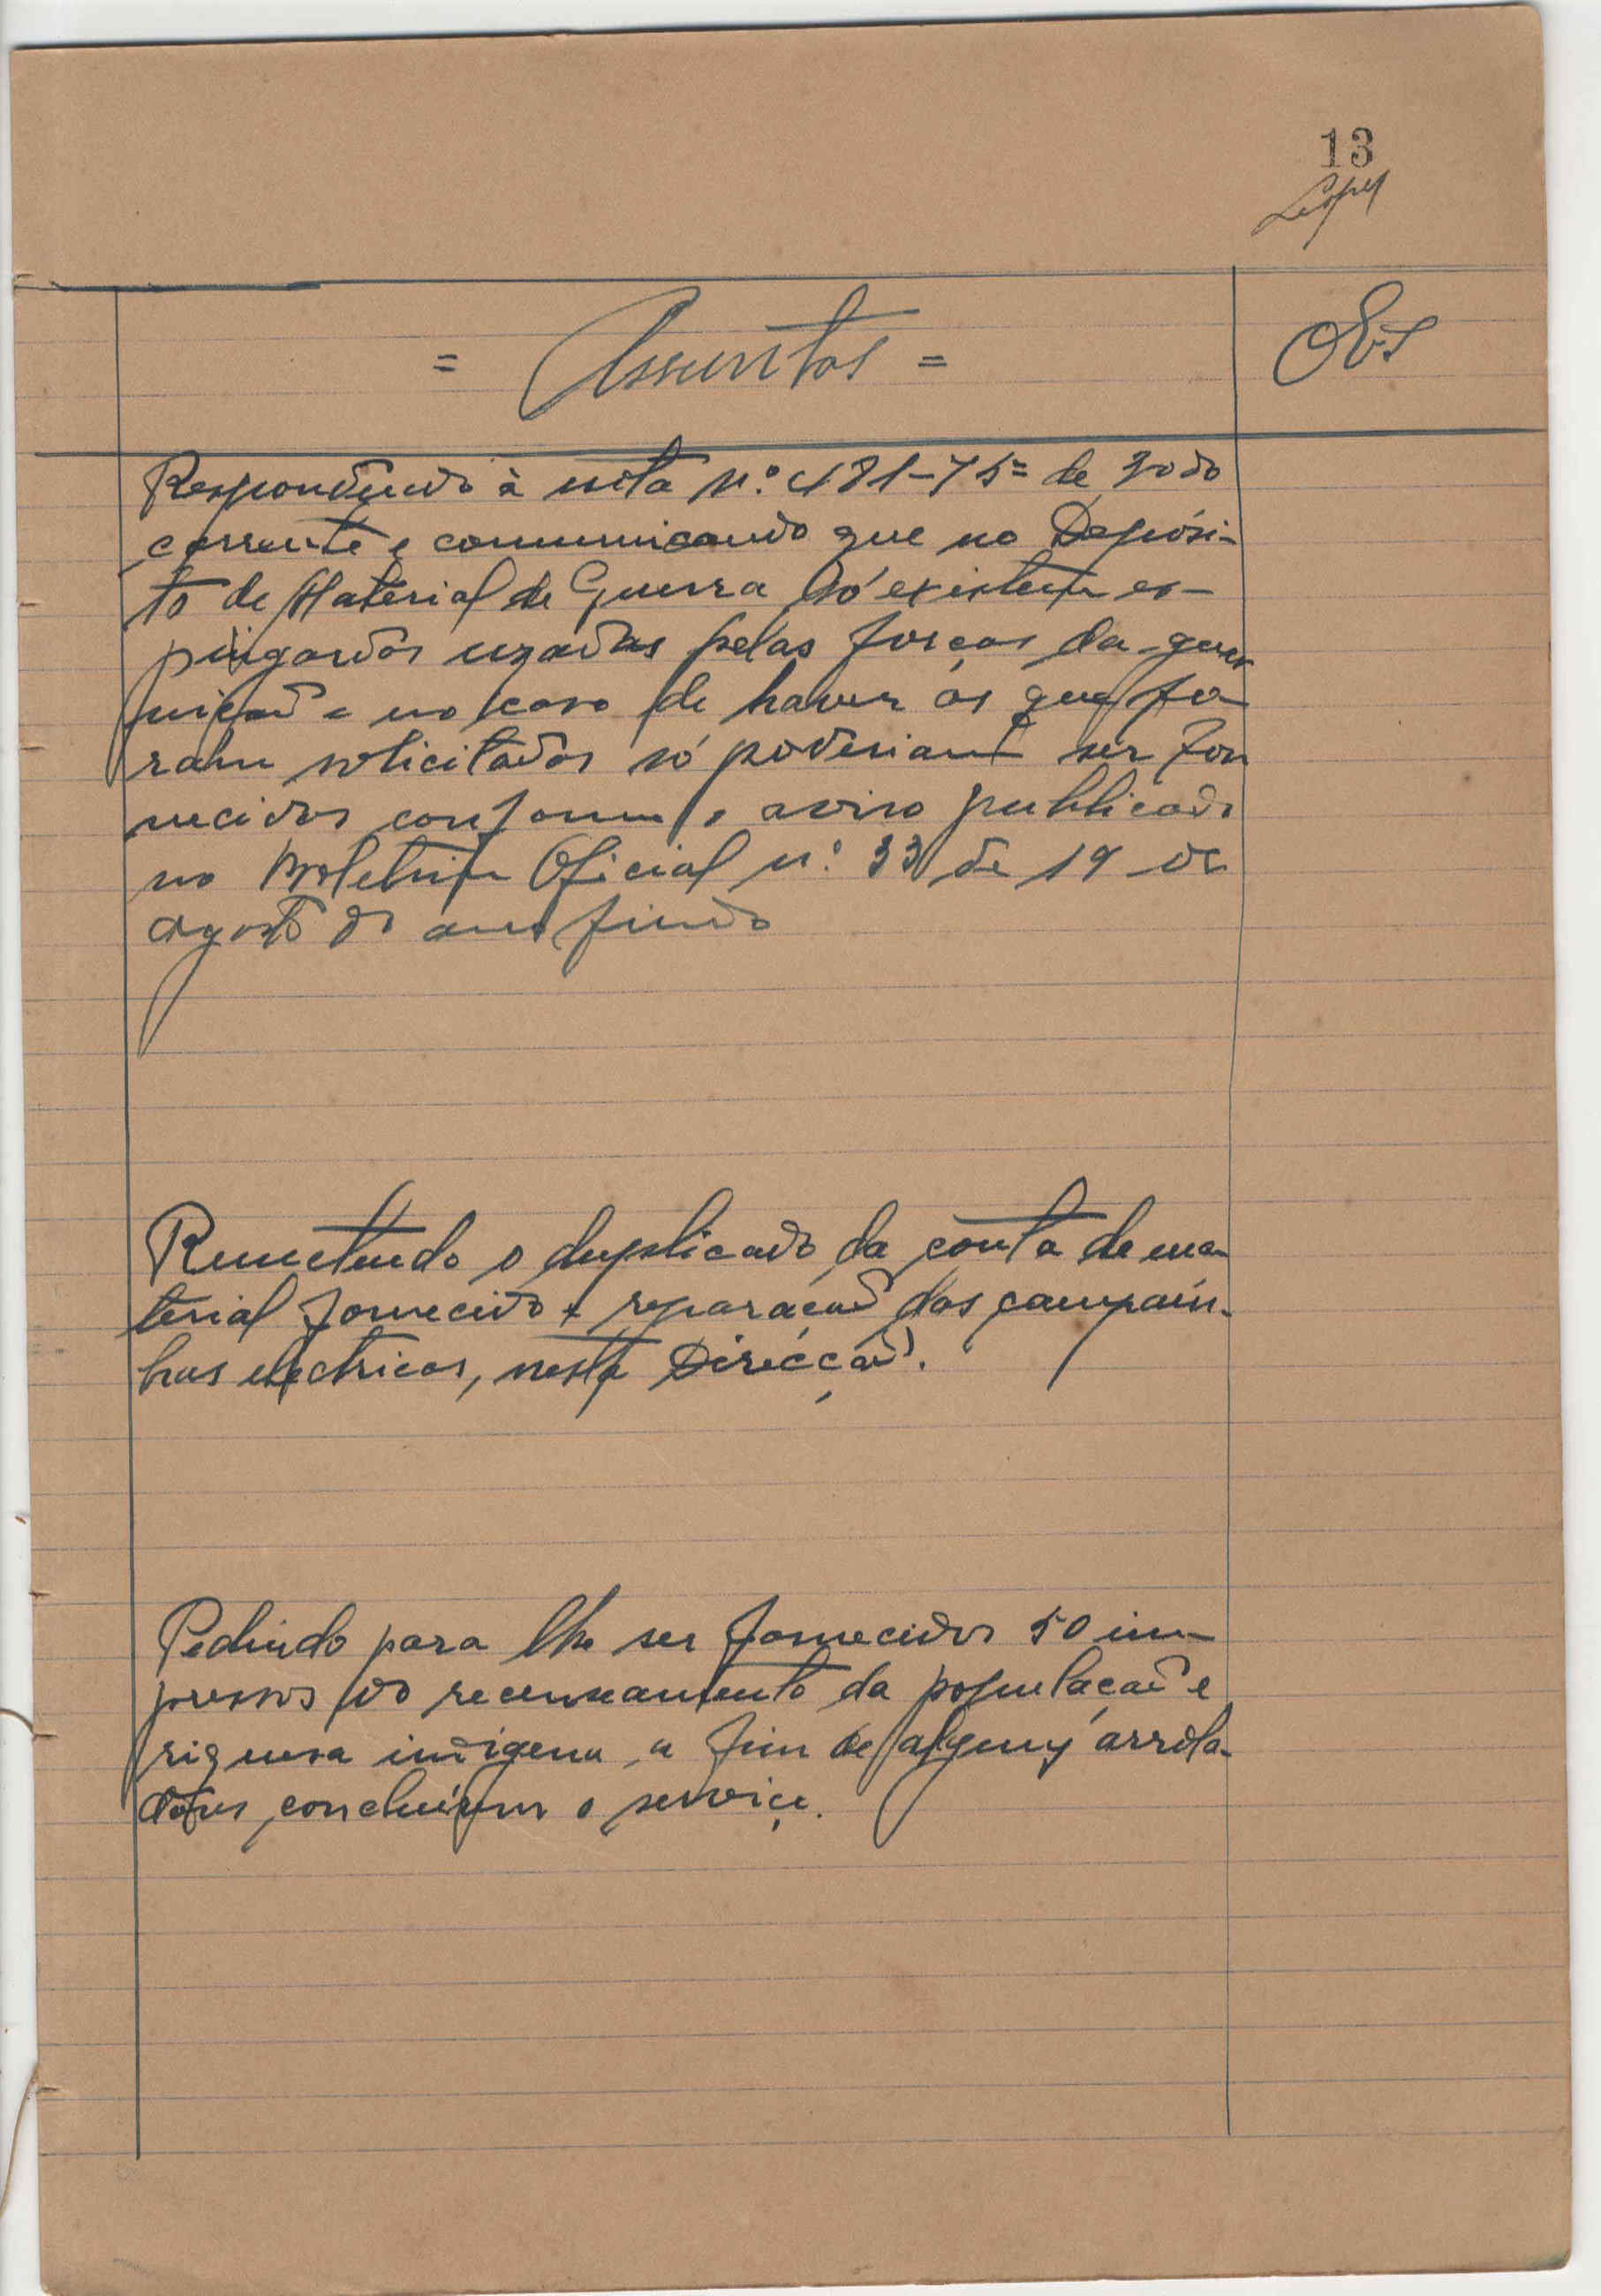 13
Lopes
= Assuntos =
Obs
Respondendo à nota n.º 481-75= de 30 do
corrente e communicando que no Depósi-
to de Material de Guerra só existem es-
pingardas uzadas pelas forças da guar
nição e no caso de haver as que fo
ram solicitadas só poderiam ser for
necidas conforme o aviso publicado
no Boletim Oficial n.º 33 de 19 de
Agosto do ano findo
Remetendo o duplicado da conta de ma-
terial fornecido e reparação das campaín-
has electricas, nesta Direcção.
Pedindo para lhe ser fornecidos 50 im-
pressos do recenseamento da população e
riquesa indigena a fim de alguns arrola-
dores concluírem o serviço.